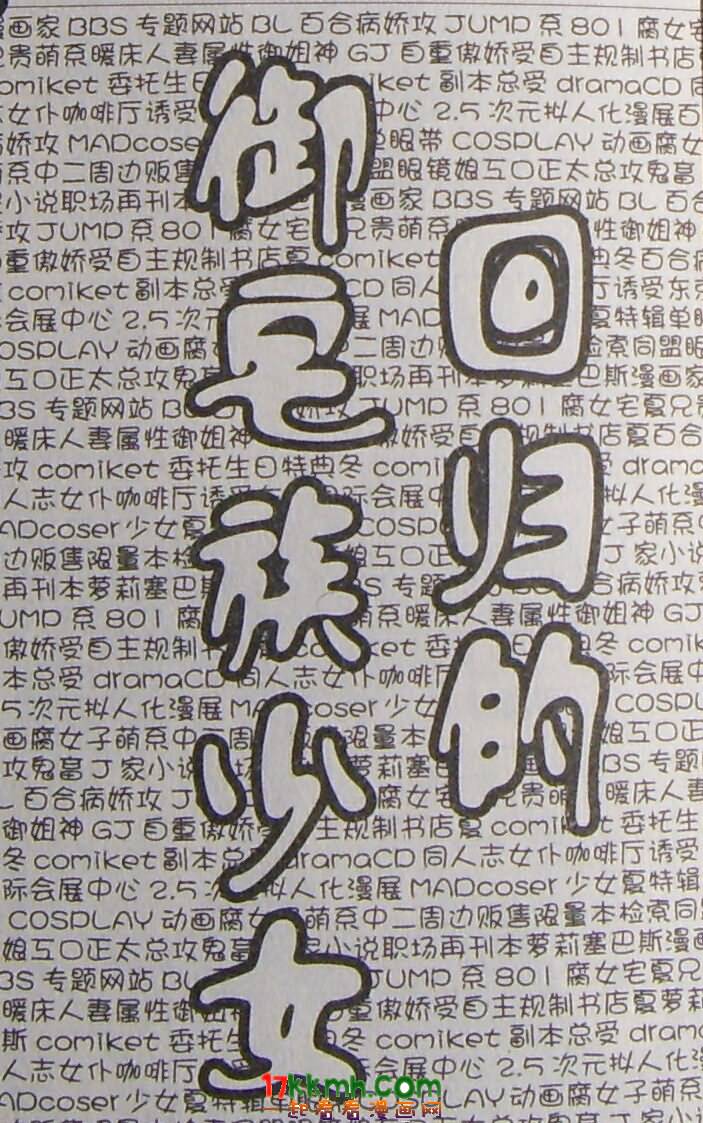 回归的
御宅族少女
画家 BBS 专题网站 BL 百合病娇攻 JUMP 系 801 腐女宅
贵萌系暖床人妻属性御姐神 GJ 自重傲娇受自主规制书店夏
comiket 委托生日
comiket 副本总受 dramaCD 同
女仆咖啡厅诱受
中心 2.5 次元拟人化漫展百
娇攻 MADcose
眼带 COSPLAY 动画腐女
系中二周边贩售
盟眼镜娘互口正太总攻鬼畜
小说职场再刊本
漫画家 BBS 专题网站 BL 百合
攻 JUMP 系 801 腐女宅
兄贵萌系
性御姐神
重傲娇受自主规制书店夏
comiket
典冬百合病
comiket 副本总受
CD 同人
厅诱受东京
会展中心 2.5 次元
展 MAD
夏特辑单眼
OSPLAY 动画腐
中二周边贩
检索同盟眼
互口正太总攻鬼畜
职场再刊本
塞巴斯漫画家
BBS 专题网站 BL
娇攻 JUMP 系 801 腐女宅夏兄贵
暖床人妻属性御姐神
自主规制书店夏百合
攻 comiket 委托生日特典冬 comiket
受 drama
人志女仆咖啡厅诱受
际会展中
拟人化漫
ADcoser 少女夏
COSP
女子萌系中
边贩售限量本检
娘互口正
J 家小说
再刊本萝莉塞巴斯
BBS 专题
合病娇攻
UMP 系 801 腐
萌系暖床人妻属性御姐神 GJ
傲娇受自主规制书店夏
ket 委托
comike
本总受 dramaCD 同人志女仆咖啡厅
际会展中心
5 次元拟人化漫展 MA
coser 少女
COSPL
画腐女子萌系中二周
限量本
娘互口正
攻鬼畜 J 家小说
场再刊本萝莉塞
BS 专题
L 百合病娇攻 J
腐女宅
兄贵萌
暖床人妻
御姐神 GJ 自重傲娇
主规制书店夏 comiket 委托生
冬 comiket 副本总
dramaCD 同人志女仆咖啡厅诱受
际会展中心 2.5 次
拟人化漫展 MADcoser 少女夏特辑
COSPLAY 动画腐女
萌系中二周边贩售限量本检索同盟
娘互口正太总攻鬼畜
家小说职场再刊本萝莉塞巴斯漫画
BS 专题网站 BL
JUMP 系 801 腐女宅夏兄
暖床人妻属性御姐
重傲娇受自主规制书店夏萝莉
斯 comiket 委托
冬 comiket 副本总受 drama
人志女仆咖啡厅诱
会展中心 2.5 次元拟人化漫
ADcoser 少女夏特辑单眼
COSPLAY 动画腐女子萌系
17kkmh.com
一起看看漫画网